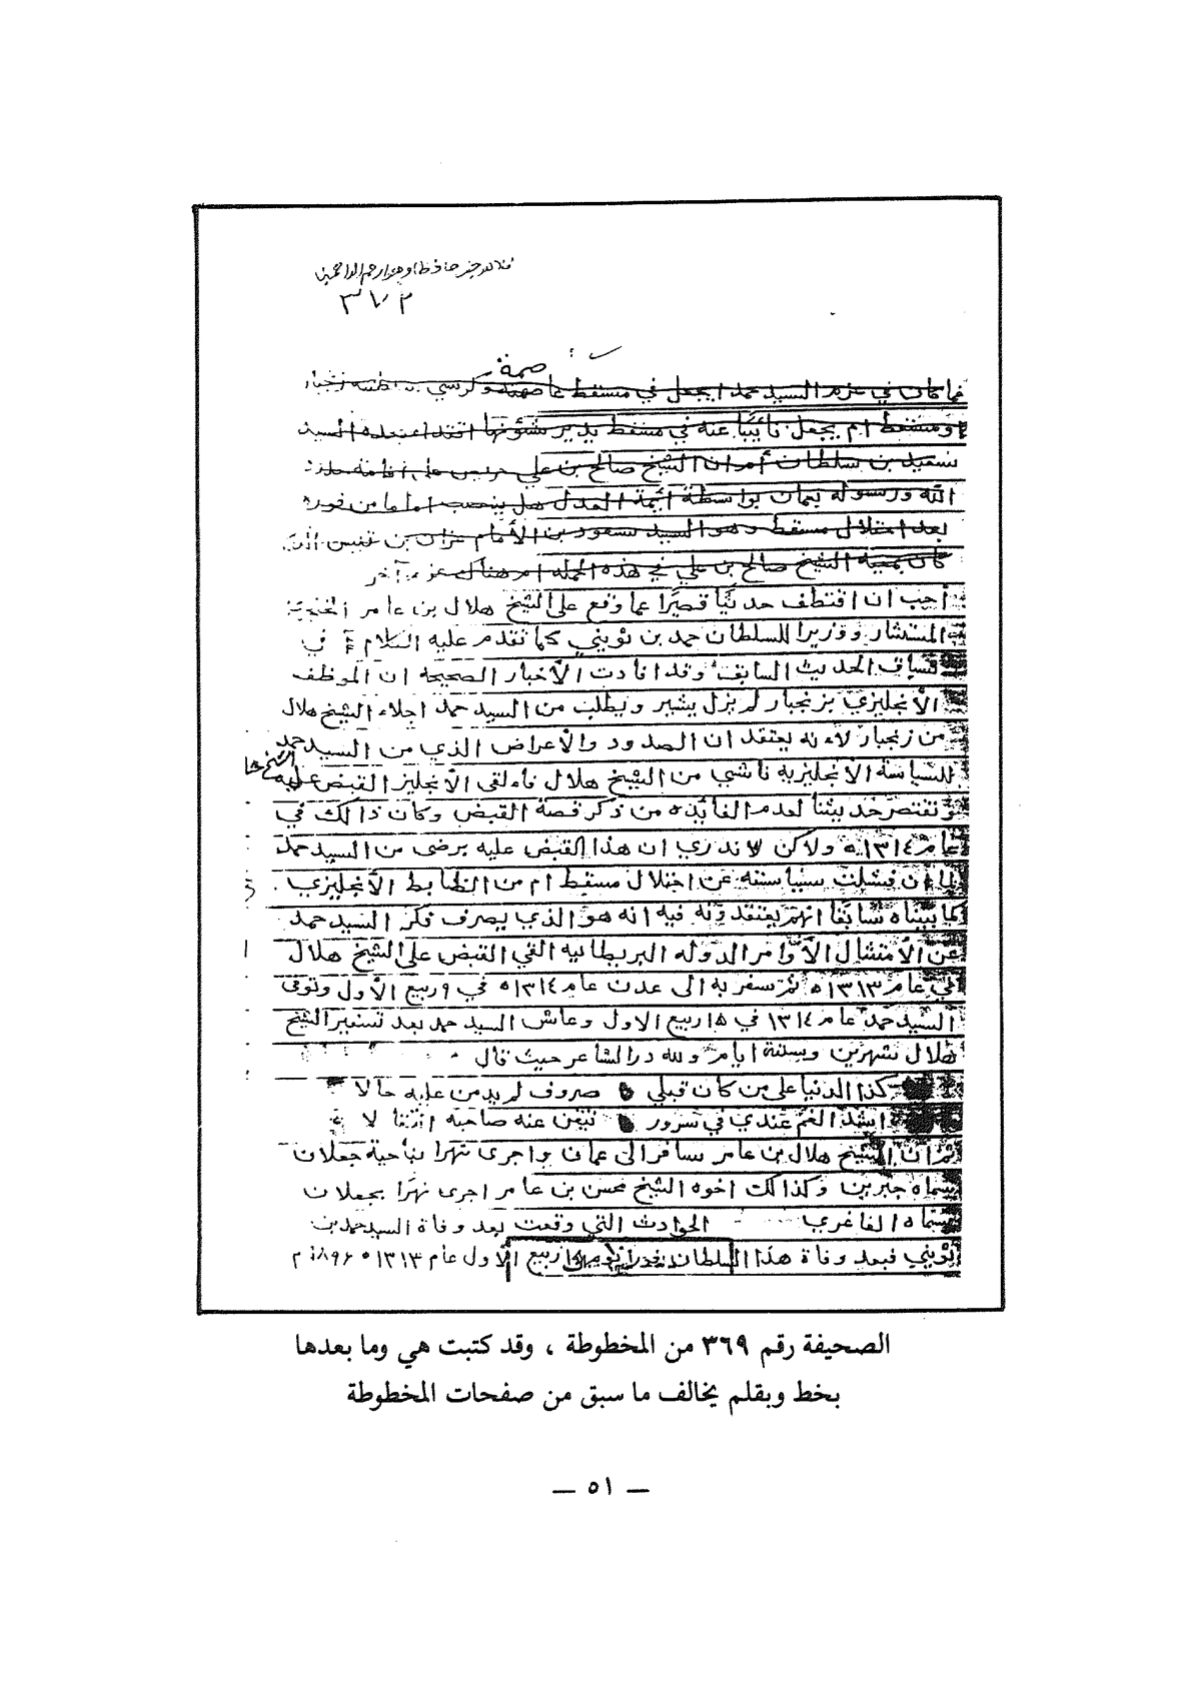 فالله خير حافظا وهو ارحم الراحمين
صمة
فما كان في عزم السيد حمد ايجعل في مسقط عاصمة وكرسي
ومسقط ام يجعل نائبًا عنه في مسقط يدير شئونها السيد
سعيد بن سلطان أم ان الشيخ صالح بن علي
الله ورسوله بعمان بواسطة ائمة العدل هل ينصب اماما من فوره
بعد احتلال مسقط وهو السيد سعود بن الأمام عزان بن قيس الذي
كان بمعية الشيخ صالح بن علي في هذه الحمله ام هناك عزم آخر
أحب ان اقتطف حديثا قصيرًا عما وقع على الشيخ هلال بن عامر
المستشار ووزيرا للسلطان حمد بن ثويني كما تقدم عليه الكلام في
سياق الحديث السابق وقد افادت الأخبار الصحيحه ان الموظف
الأنجليزي بزنجبار لم يزل يشير ويطلب من السيد حمد اجلاء الشيخ هلال
من زنجبار لأنه يعتقد ان الصدود والأعراض الذي من السيد حمد
للسياسة الأنجليزيه ناشي من الشيخ هلال فألقى الأنجليز القبض عليه
ونقتصر حديثنا لعدم الفائده من ذكر قصة القبض وكان ذالك في
عام ١٣١٤ه ولاكن لا ندري ان هذا القبض عليه برضى من السيد حمد
لما ان فشلت سياسته عن احتلال مسقط ام من الظابط الأنجليزي
كما بيناه سابقًا انهم يعتقدونه فيه انه هو الذي يصرف فكر السيد حمد
عن الأمتثال الأوامر الدوله البريطانيه القي القبض على الشيخ هلال
في عام ١٣١٣ه ثم سفر به الى عدن عام ١٣١٤ه في ٩ ربيع الأول وتوفى
السيد حمد عام ١٣١٤ في ١٥ ربيع الاول وعاش السيد حمد بعد تسفير الشيخ
هلال شهرين وستة ايام ولله در الشاعر حيث قال
كذا الدنيا على من كان قبلي صروف لم يدمن عليه حالا
اشد الغم عندي في سرور تيقن عنه صاحبه انتقالا
ثم ان الشيخ هلال بن عامر سافر الى عمان واجرى نهرا بناحية جعلان
سماه جبرين وكذالك اخوه الشيخ محسن بن عامر اجرى نهرًا بجعلان
سماه الفاغري الحوادث التي وقعت بعد وفاة السيد حمد بن
ثويني فبعد وفاة هذا السلطان ربيع الأول عام ١٣١٣ه ١٨٩٦ م
الصحيفة رقم ٣٦٩ من المخطوطة ، وقد كتبت هي وما بعدها
بخط وبقلم يخالف ما سبق من صفحات المخطوطة
— ٥١ —